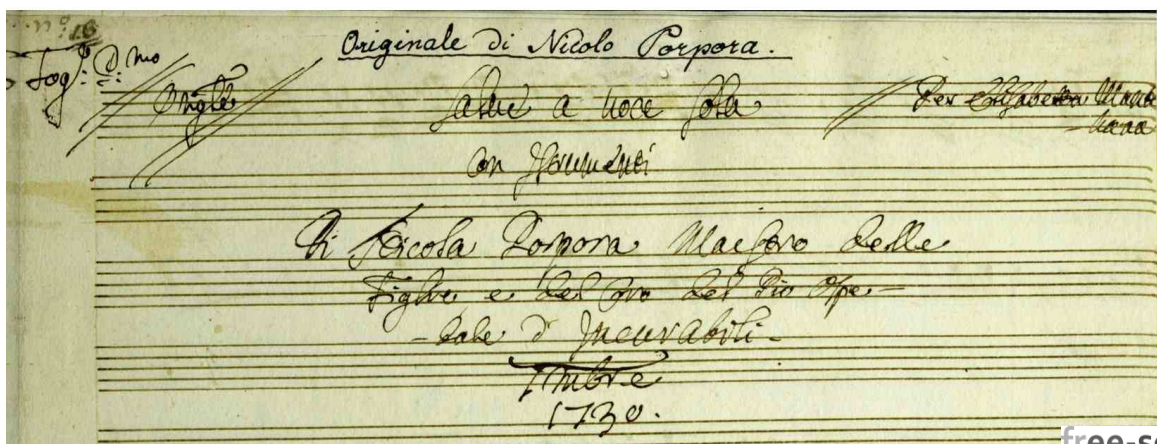 nº 16
Originale di Nicolo Porpora.
Salve a voce sola Per Elisabetta Mant-
-vana
con Istrumenti
Di Nicola Porpora Maestro delle
Figlie e del Coro del Pio Ospe-
-dale d' Incurabili-
7mbre
1730.
free-s